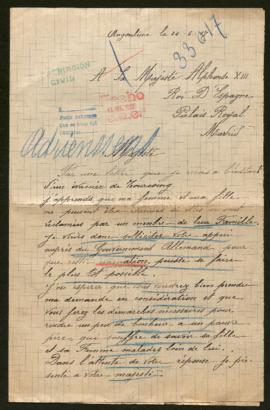 Angoulême le 20-6-
33617
INSCRIPCIÓN
CIVIL
Hecho
A Sa Majesté Alphonse XIII
Roi D'Espagne
Palais Royal
Madrid
Adriensens
Majesté
par une lettre que je viens
d'une de Tourcoing
j'apprends que ma femme et ma fille
ne peuvent être
réclamées par un membre de leur Famille.
Je viens donc solliciter votre appui
auprès du Gouvernement Allemand pour
que cette puisse se faire
le plus tôt possible.
J'ose espérer que vous voudrez bien prendre
ma demande en considération et que
vous ferez les démarches nécessaires pour
rendre un peu de bonheur à un pauvre
père que souffre de savoir sa fille
et sa Femme malades loin de lui.
Dans l'attente de votre réponse je pré
sente à votre majesté